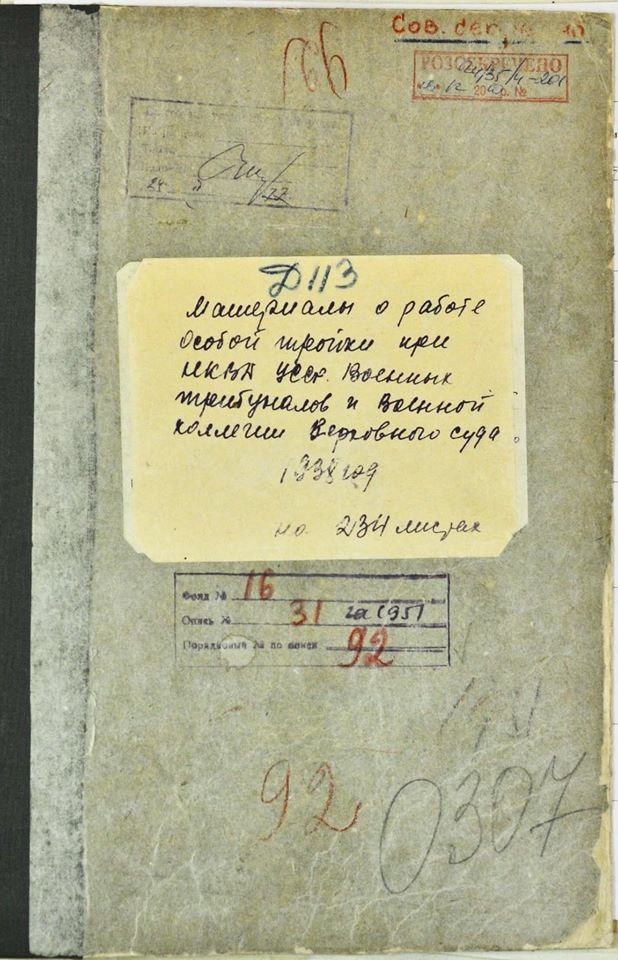 Сов. секретно
РОЗСЕКРЕЧЕНО
20 р. №
24
77
Д113
Материалы о работе
особой тройки при
НКВД УССР. Военных
трибуналов и Военной
коллегии Верховного суда
1938 год
на 234 листах
Фонд № 16
Опись № 31 за 1951
Порядковый № по описи 92
92
0307